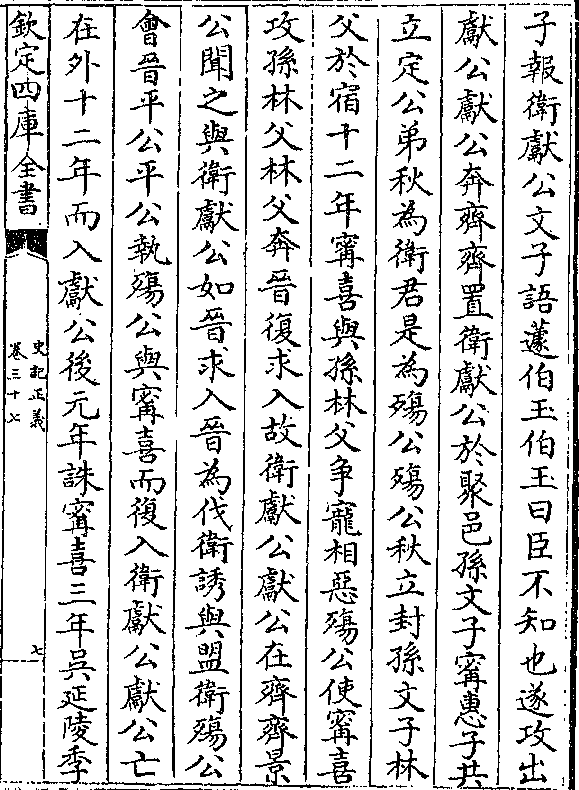 子報衛獻公文子語蘧伯玉伯玉曰臣不知也遂攻出
獻公獻公奔齊齊置衛獻公於聚邑孫文子甯惠子共
立定公弟秋為衛君是為殤公殤公秋立封孫文子林
父於宿十二年甯喜與孫林父爭寵相惡殤公使甯喜
攻孫林父林父奔晉復求入故衛獻公獻公在齊齊景
公聞之與衛獻公如晉求入晉為伐衛誘與盟衛殤公
會晉平公平公執殤公與甯喜而復入衛獻公獻公亡
在外十二年而入獻公後元年誅甯喜三年吳延陵季
欽定四庫全書
史記正義
卷三十七
七